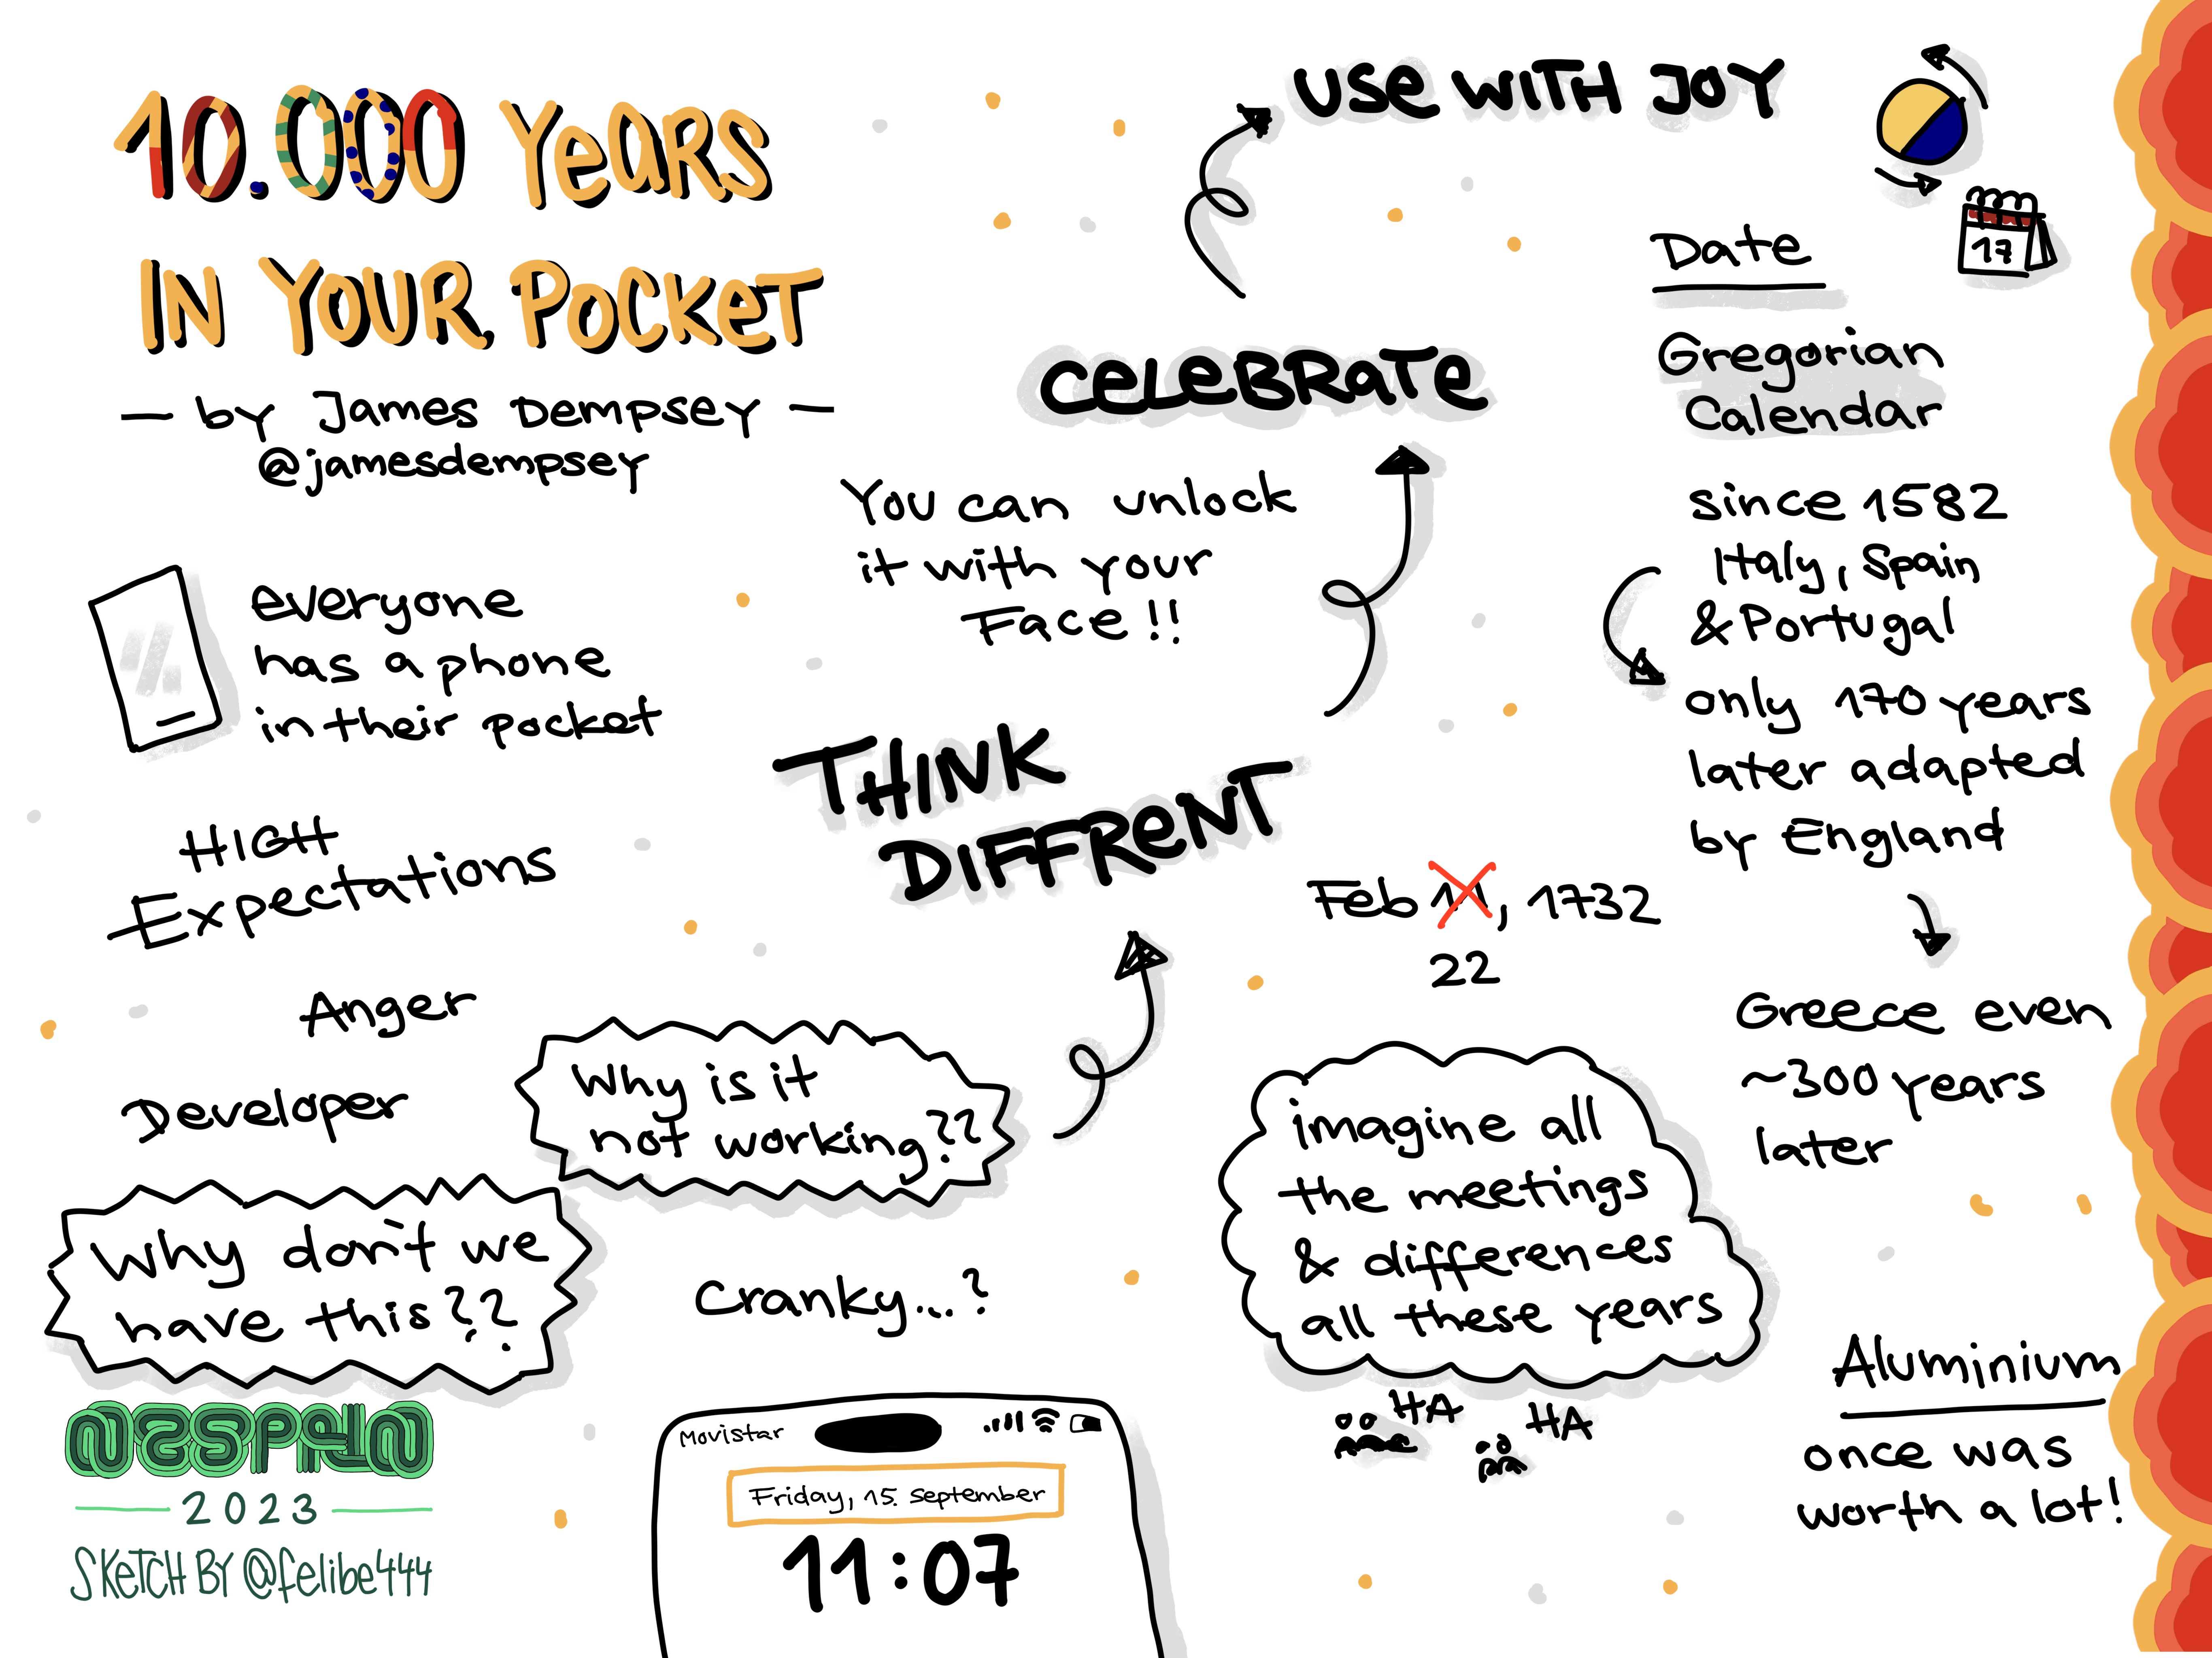 10.000 Years
IN YOUR POCKET
— by James Dempsey —
@jamesdempsey
everyone
has a phone
in their pocket
HIGH
Expectations
Anger
Developer
Why is it
not working??
Why don't we
have this??
Cranky...?
NSSPAIN
2023
SKETCH BY @felibe444
Movistar
Friday, 15. September
11:07
THINK
DIFFRENT
You can unlock
it with your
Face!!
CELEBRATE
USE WITH JOY
17
Date
Gregorian
Calendar
since 1582
Italy, Spain
& Portugal
only 170 years
later adapted
by England
Feb 11, 1732
22
Greece even
~300 years
later
imagine all
the meetings
& differences
all these years
HA
HA
Aluminium
once was
worth a lot!